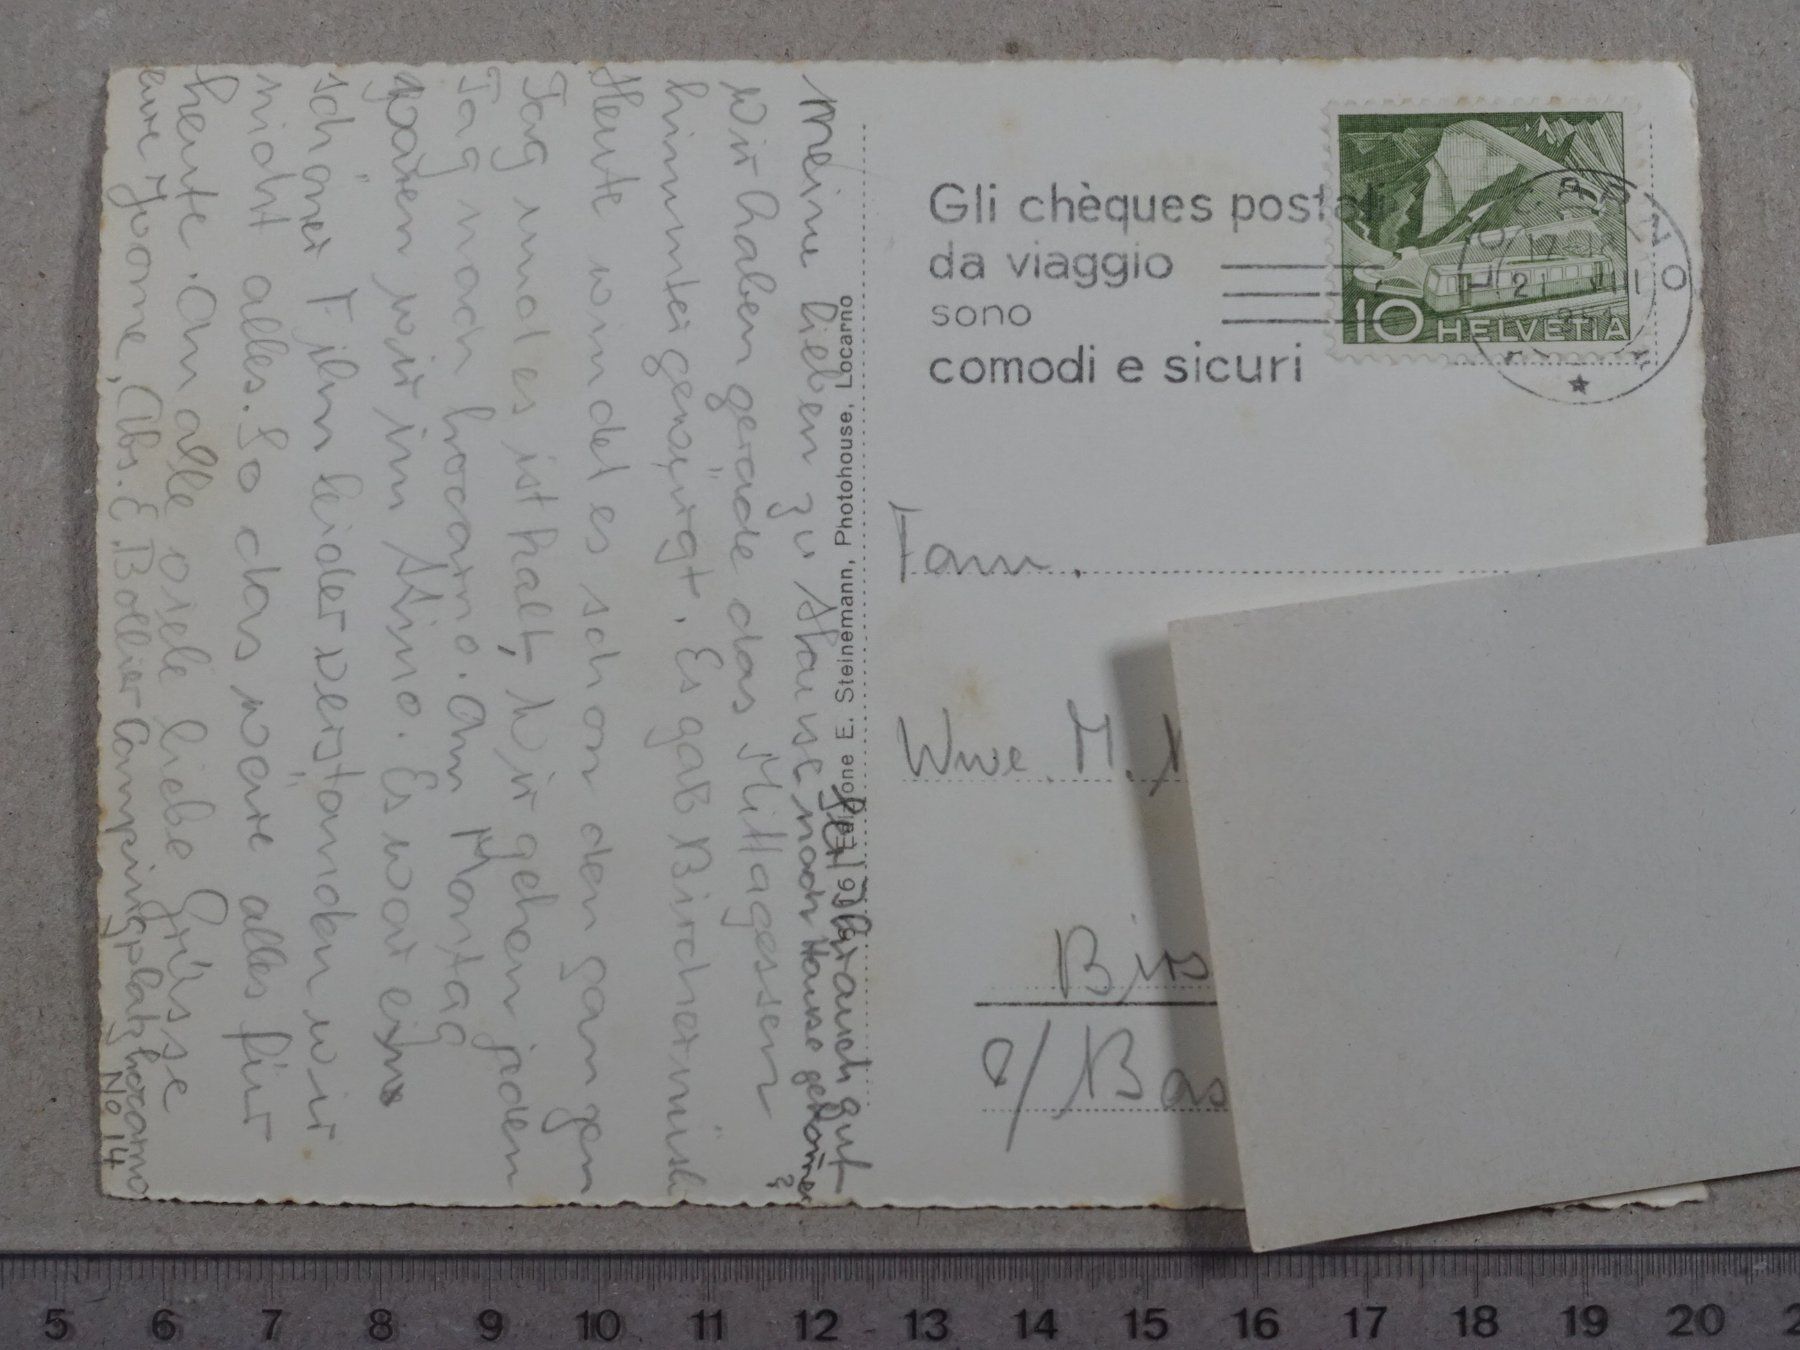 Meine lieben zu Hause
Seit Ihr auch gut
nach Hause gekommen
?
Wir haben gerade das Mittagessen
hinuntergewürgt. Es gab Birchermüsli
Heute windet es schon den ganzen
Tag und es ist kalt, Wir gehen jeden
Tag nach Locarno. Am Montag
waren wir im Kino. Es war ein
schöner Film leider verstanden wir
nicht alles. So das wäre alles für
heute. An alle viele liebe Grüsse
eure Yvonne, Abs. E. Bollier Campingplatz Locarno
No 14
E. Steinemann, Photohouse, Locarno
Gli chèques postali
da viaggio
sono
comodi e sicuri
LOCARNO
21. VIII
10 HELVETIA
Fam.
Wwe. M.
Birs
o/ Bas
5 6 7 8 9 10 11 12 13 14 15 16 17 18 19 20